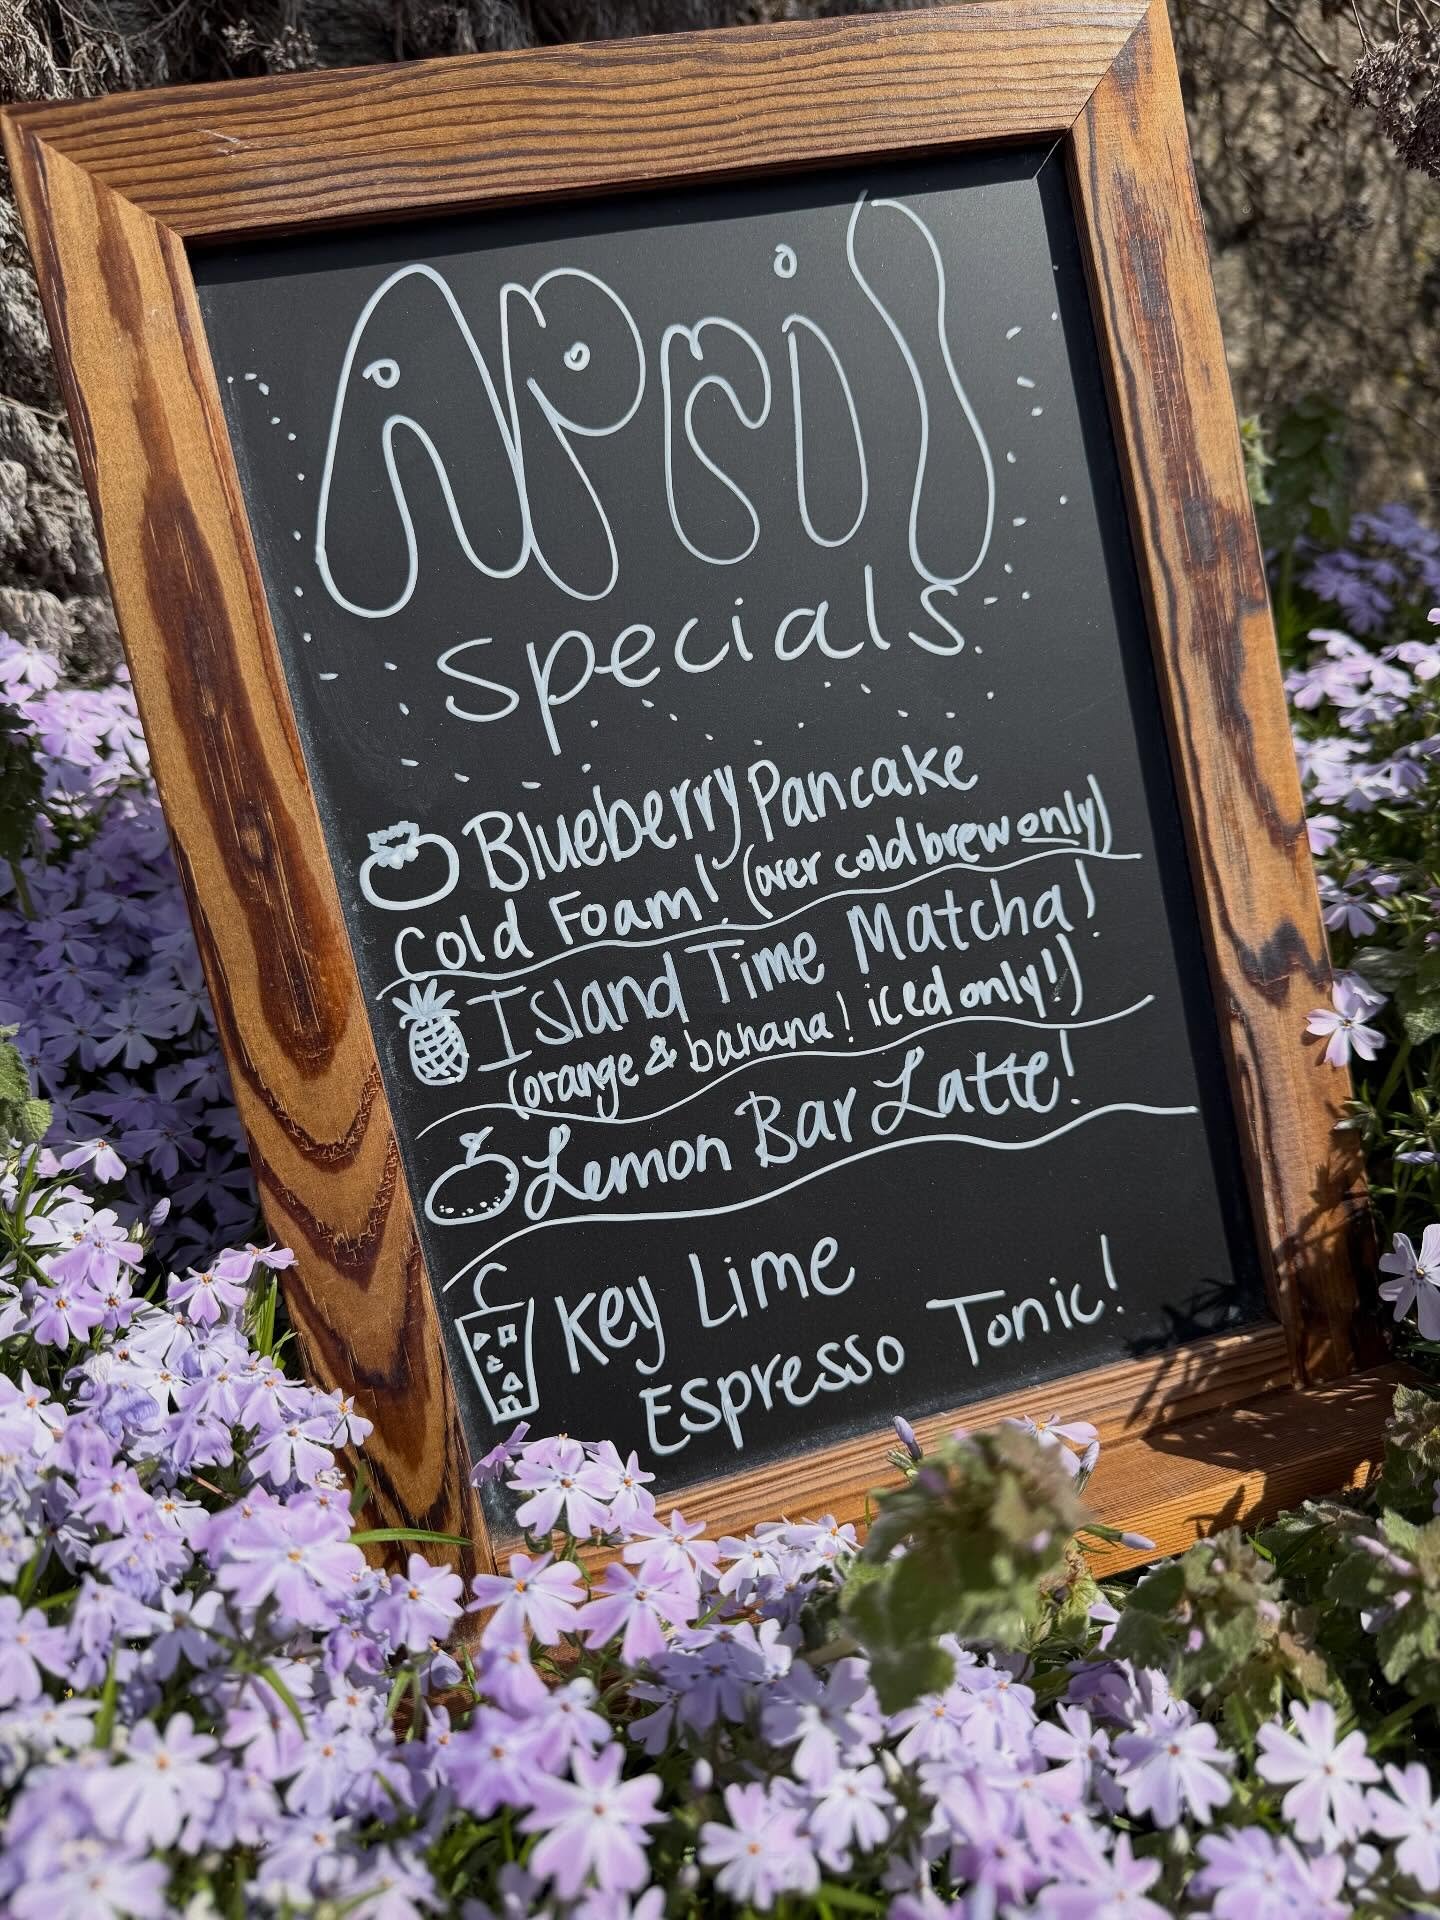 April
specials.
Blueberry Pancake
Cold Foam! (over cold brew only)
Island Time Matcha!
(orange & banana! iced only!)
Lemon Bar Latte!
Key Lime
Espresso Tonic!